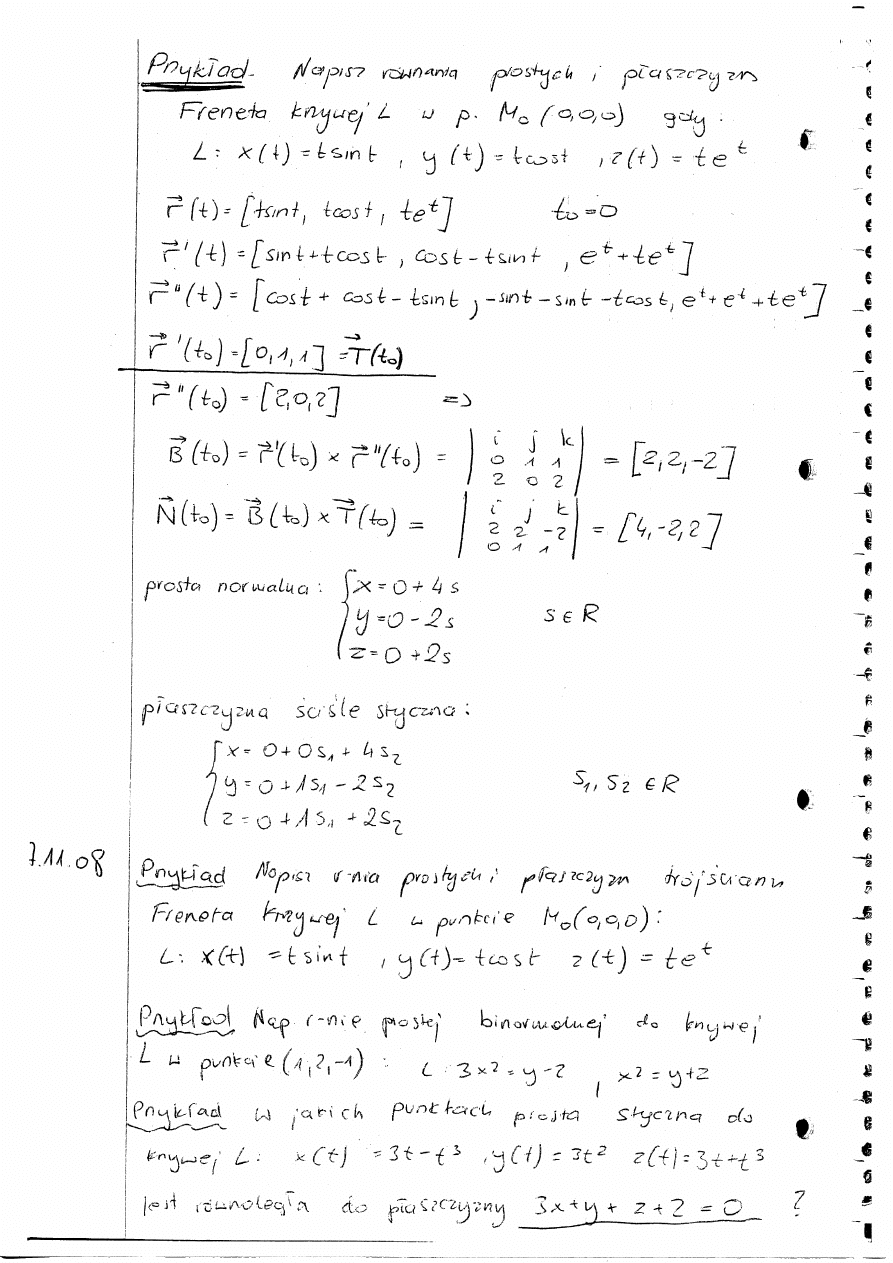 Przykład. Napisz równania prostych i płaszczyzn
Freneta krzywej L w p. M₀(0,0,0) gdy:
L: x(t) = tsint, y(t) = tcost, z(t) = te^t
r⃗(t) = [tsint, tcost, te^t] t₀=0
r⃗'(t) = [sint+tcost, cost-tsint, e^t+te^t]
r⃗''(t) = [cost + cost-tsint, -sint-sint-tcost, e^t+e^t+te^t]
r⃗'(t₀) = [0,1,1] = T⃗(t₀)
r⃗''(t₀) = [2,0,2] =>
B⃗(t₀) = r⃗'(t₀) × r⃗''(t₀) = | i j k ; 0 1 1 ; 2 0 2 | = [2,2,-2]
N⃗(t₀) = B⃗(t₀) × T⃗(t₀) = | i j k ; 2 2 -2 ; 0 1 1 | = [4,-2,2]
prosta normalna: { x=0+4s
y=0-2s s∈R
z=0+2s
płaszczyzna ściśle styczna:
{ x= 0+0s₁+4s₂
y=0+1s₁-2s₂ s₁, s₂ ∈R
z=0+1s₁+2s₂
7.11.08 Przykład Napisz r-nia prostych i płaszczyzn trójścianu
Freneta krzywej L w punkcie M₀(0,0,0):
L: x(t) = tsint, y(t)= tcost z(t) = te^t
Przykład Nap r-nie prostej binormalnej do krzywej
L w punkcie (1,2,-1): L: 3x²=y-z, x²=y+z
Przykład W jakich punktach prosta styczna do
krzywej L: x(t) =3t-t³, y(t)=3t² z(t)=3t+t³
jest równoległa do płaszczyzny 3x+y+z+2=0 ?